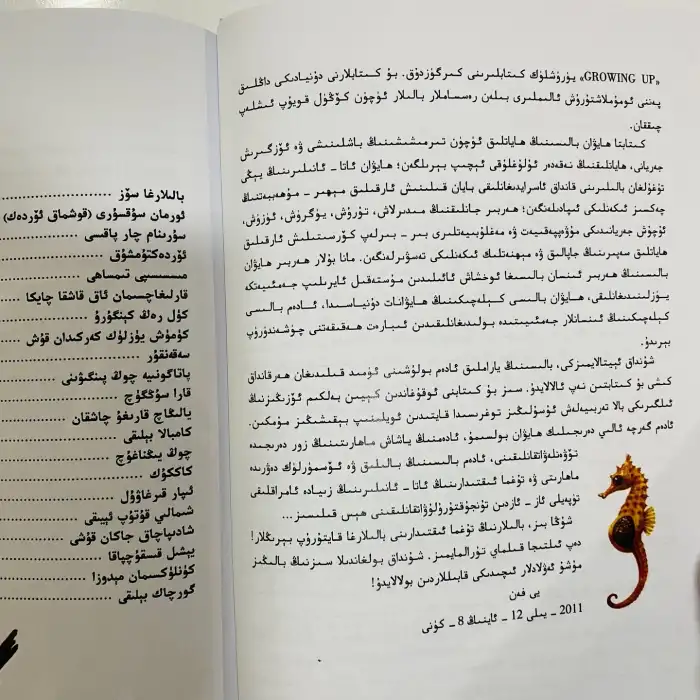 «GROWING UP» يۈرۈشلۈك كىتابلىرىنى كىرگۈزدۇق. بۇ كىتابلارنى دۇنيادىكى داڭلىق
پەننى ئومۇملاشتۇرۇش ئالىملىرى بىلەن رەسساملار بالىلار ئۈچۈن كۆڭۈل قويۇپ ئىشلەپ
چىققان.
كىتابتا ھايۋان بالىسىنىڭ ھاياتلىق ئۈچۈن تىرمىشىشىنىڭ باشلىنىشى ۋە ئۆزگىرىش
جەريانى، ھاياتلىقنىڭ نەقەدەر ئۇلۇغلۇقى ئېچىپ بېرىلگەن؛ ھايۋان ئاتا ـ ئانىلىرىنىڭ يېڭى
تۇغۇلغان بالىلىرىنى قانداق ئاسرايدىغانلىقى بايان قىلىنىش ئارقىلىق مېھىر ـ مۇھەببەتنىڭ
چەكسىز ئىكەنلىكى ئىپادىلەنگەن؛ ھەربىر جانلىقنىڭ مىدىرلاش، تۇرۇش، يۈگۈرۈش، ئۈزۈش،
ئۇچۇش جەريانىدىكى مۇۋەپپەقىيەت ۋە مەغلۇبىيەتلىرى بىر ـ بىرلەپ كۆرسىتىلىش ئارقىلىق
ھاياتلىق سەپىرىنىڭ جاپالىق ۋە مېھنەتلىك ئىكەنلىكى تەسۋىرلەنگەن. مانا بۇلار ھەربىر ھايۋان
بالىسىنىڭ ھەربىر ئىنسان بالىسىغا ئوخشاش ئائىلىدىن مۇستەقىل ئايرىلىپ جەمئىيەتكە
يۈزلىنىدىغانلىقى، ھايۋان بالىسى كېلەچىكىنىڭ ھايۋانات دۇنياسىدا، ئادەم بالىسى
كېلەچىكىنىڭ ئىنسانلار جەمئىيىتىدە بولىدىغانلىقىدىن ئىبارەت ھەقىقەتنى چۈشەندۈرۈپ
بېرىدۇ.
شۇنداق ئېيتالايمىزكى، بالىسىنىڭ ياراملىق ئادەم بولۇشىنى ئۈمىد قىلىدىغان ھەرقانداق
كىشى بۇ كىتابتىن نەپ ئالالايدۇ. سىز بۇ كىتابنى ئوقۇغاندىن كېيىن بەلكىم ئۆزىڭىزنىڭ
ئىلگىرىكى بالا تەربىيەلەش ئۇسۇلىڭىز توغرىسىدا قايتىدىن ئويلىنىپ بېقىشىڭىز مۇمكىن.
ئادەم گەرچە ئالىي دەرىجىلىك ھايۋان بولسىمۇ، ئادەمنىڭ ياشاش ماھارىتىنىڭ زور دەرىجىدە
تۆۋەنلەۋاتقانلىقىنى، ئادەم بالىسىنىڭ بالىلىق ۋە ئۆسمۈرلۈك دەۋرىدە
ماھارىتى ۋە تۇغما ئىقتىدارىنىڭ ئاتا ـ ئانىلىرىنىڭ زىيادە ئامراقلىقى
تۈپەيلى ئاز ـ ئازدىن تۇنجۇقتۇرۇلۇۋاتقانلىقىنى ھېس قىلىسىز...
شۇڭا بىز، بالىلارنىڭ تۇغما ئىقتىدارىنى بالىلارغا قايتۇرۇپ بېرىڭلار!
دەپ ئىلتىجا قىلماي تۇرالمايمىز. شۇنداق بولغاندىلا سىزنىڭ بالىڭىز
مۇشۇ ئەۋلادلار ئىچىدىكى قابىللاردىن بولالايدۇ!
يى فەن
2011 ـ يىلى 12 ـ ئاينىڭ 8 ـ كۈنى
بالىلارغا سۆز
ئورمان سۇقسۇرى (قوشماق ئۆردەك)
سۇرىنام چار پاقىسى
ئۆردەكتۇمشۇق
مىسسىسىپى تىمساھى
قارلىغاچسىمان ئاق قاشقا چايكا
كۈل رەڭ كېنگۇرۇ
كۈمۈش يۈزلۈك كەركىدان قۇش
سەقەنقۇر
پاتاگونىيە چوڭ پىنگۋىنى
قارا سۇڭگۇچ
يالىڭاچ قارىغۇ چاشقان
كامبالا بېلىقى
چوڭ يىڭناغۇچ
كاككۇك
ئىپار قىرغاۋۇل
شىمالىي قۇتۇپ ئېيىقى
شادىپاچاق جاكان قۇشى
يېشىل قىسقۇچپاقا
كۈنلۈكسىمان مېدوزا
گورچاك بېلىقى